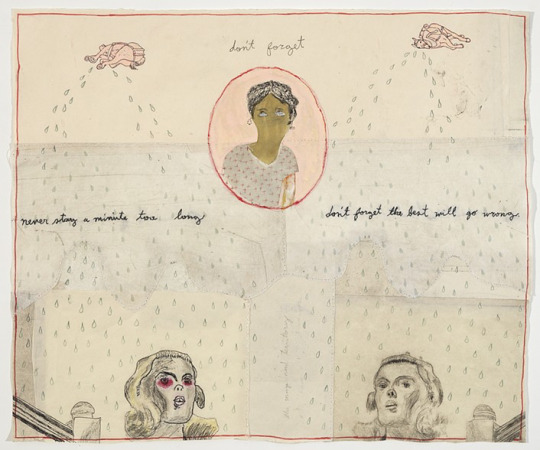 don't forget
never stay a minute too long
don't forget the best will go wrong.